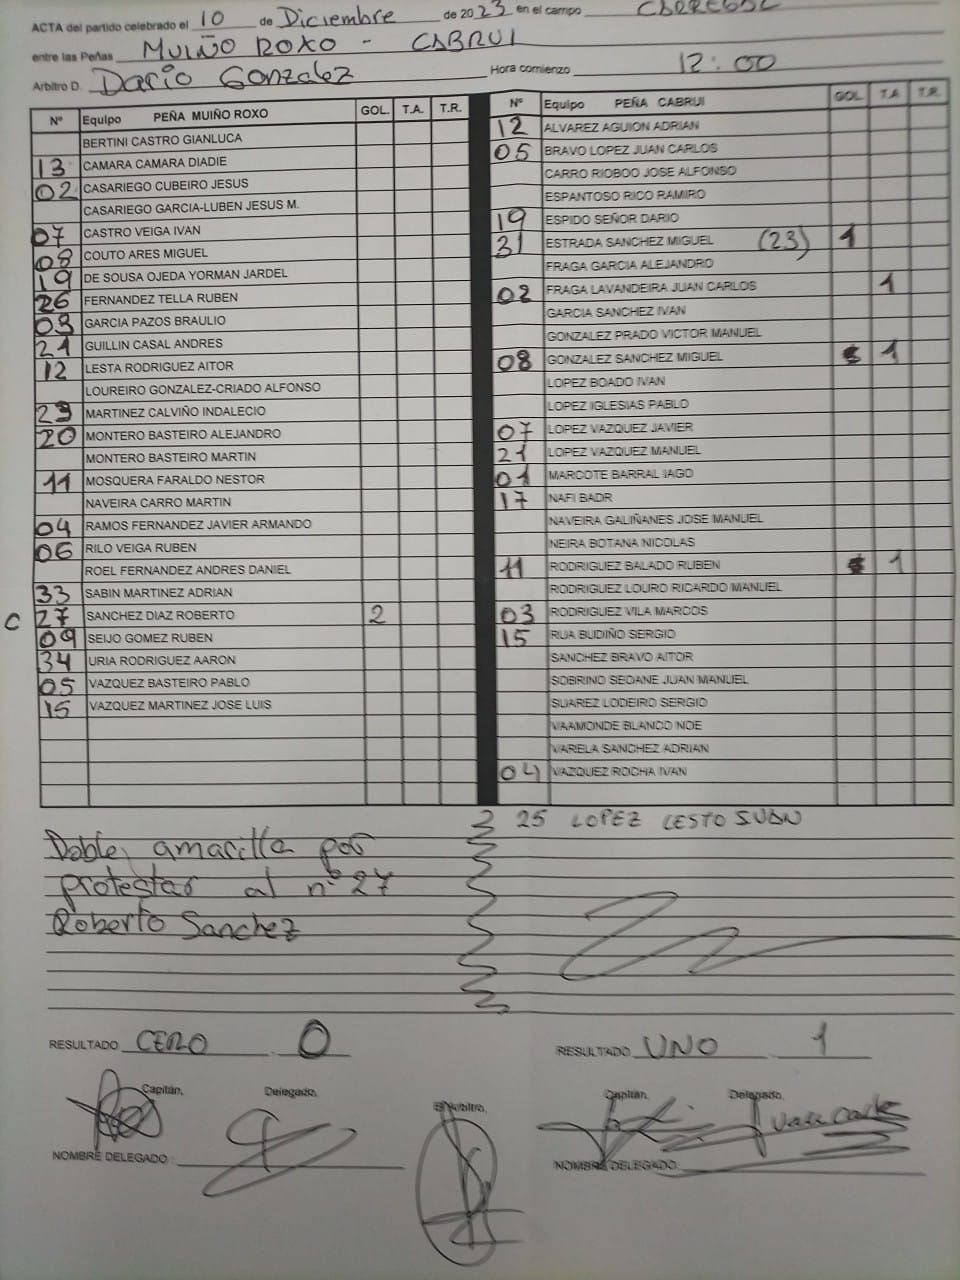 ACTA del partido celebrado el 10 de Diciembre de 2023 en el campo
entre las Peñas MUIÑO ROXO - CABRUI
Arbitro D. Dario Gonzalez Hora comienzo 12:00
Nº Equipo PEÑA MUIÑO ROXO GOL. T.A. T.R.
BERTINI CASTRO GIANLUCA
13 CAMARA CAMARA DIADIE
02 CASARIEGO CUBEIRO JESUS
CASARIEGO GARCIA-LUBEN JESUS M.
07 CASTRO VEIGA IVAN
08 COUTO ARES MIGUEL
19 DE SOUSA OJEDA YORMAN JARDEL
26 FERNANDEZ TELLA RUBEN
03 GARCIA PAZOS BRAULIO
21 GUILLIN CASAL ANDRES
12 LESTA RODRIGUEZ AITOR
LOUREIRO GONZALEZ-CRIADO ALFONSO
23 MARTINEZ CALVIÑO INDALECIO
20 MONTERO BASTEIRO ALEJANDRO
MONTERO BASTEIRO MARTIN
11 MOSQUERA FARALDO NESTOR
NAVEIRA CARRO MARTIN
04 RAMOS FERNANDEZ JAVIER ARMANDO
06 RILO VEIGA RUBEN
ROEL FERNANDEZ ANDRES DANIEL
33 SABIN MARTINEZ ADRIAN
C 27 SANCHEZ DIAZ ROBERTO 2
09 SEIJO GOMEZ RUBEN
34 URIA RODRIGUEZ AARON
05 VAZQUEZ BASTEIRO PABLO
15 VAZQUEZ MARTINEZ JOSE LUIS
Nº Equipo PEÑA CABRUI GOL T.A T.R.
12 ALVAREZ AGUION ADRIAN
05 BRAVO LOPEZ JUAN CARLOS
CARRO RIOBOO JOSE ALFONSO
ESPANTOSO RICO RAMIRO
19 ESPIDO SEÑOR DARIO
31 ESTRADA SANCHEZ MIGUEL (23) 1
FRAGA GARCIA ALEJANDRO
02 FRAGA LAVANDEIRA JUAN CARLOS 1
GARCIA SANCHEZ IVAN
GONZALEZ PRADO VICTOR MANUEL
08 GONZALEZ SANCHEZ MIGUEL 1
LOPEZ BOADO IVAN
LOPEZ IGLESIAS PABLO
07 LOPEZ VAZQUEZ JAVIER
21 LOPEZ VAZQUEZ MANUEL
01 MARCOTE BARRAL IAGO
17 NAFI BADR
NAVEIRA GALIÑANES JOSE MANUEL
NEIRA BOTANA NICOLAS
11 RODRIGUEZ BALADO RUBEN 1
RODRIGUEZ LOURO RICARDO MANUEL
03 RODRIGUEZ VILA MARCOS
15 RUA BUDIÑO SERGIO
SANCHEZ BRAVO AITOR
SOBRINO SEOANE JUAN MANUEL
SUAREZ LODEIRO SERGIO
VAAMONDE BLANCO NOE
VARELA SANCHEZ ADRIAN
04 VAZQUEZ ROCHA IVAN
25 LOPEZ LESTO IVAN
Doble amarilla por
protestar al nº 27
Roberto Sanchez
RESULTADO CERO 0
RESULTADO UNO 1
Capitán, Delegado, El Arbitro, Capitán, Delegado,
NOMBRE DELEGADO:
NOMBRE DELEGADO: